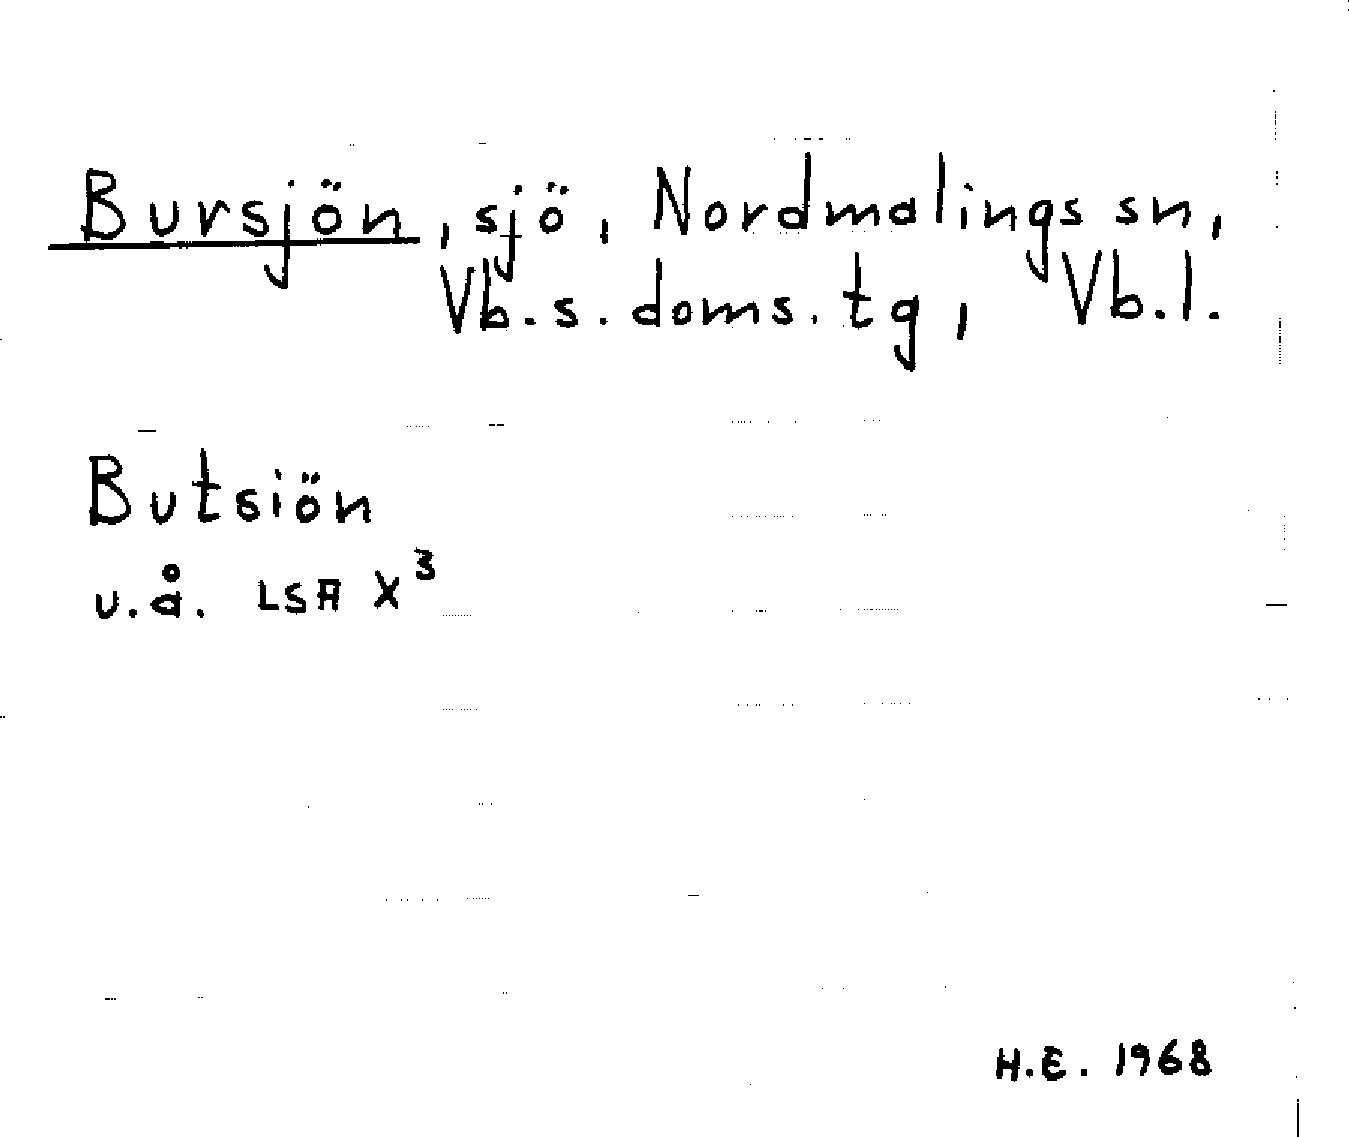 Bursjön, sjö, Nordmalings sn,
Vb.s.doms.tg, Vb.l.
Butsiön
u.å. LSA X³
H.E. 1968